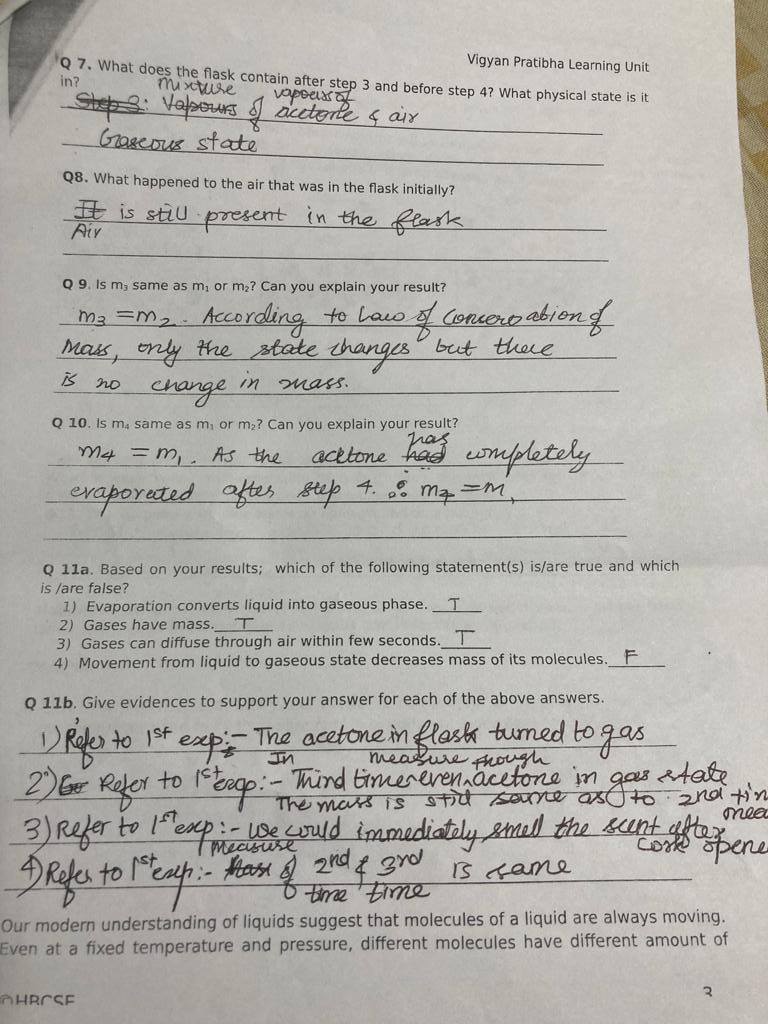 Vigyan Pratibha Learning Unit
Q 7. What does the flask contain after step 3 and before step 4? What physical state is it
in?
mixture vapours of
Step 3: Vapours of acetone & air
Gaseous state
Q8. What happened to the air that was in the flask initially?
It is still present in the flask
Air
Q 9. Is m₃ same as m₁ or m₂? Can you explain your result?
m3 = m2. According to Law of Conservation of
Mass, only the state changes but there
is no change in mass.
Q 10. Is m₄ same as m₁ or m₂? Can you explain your result?
has
m4 = m1. As the acetone had completely
evaporated after step 4. ∴ m4 = m1
Q 11a. Based on your results; which of the following statement(s) is/are true and which
is /are false?
1) Evaporation converts liquid into gaseous phase. T
2) Gases have mass. T
3) Gases can diffuse through air within few seconds. T
4) Movement from liquid to gaseous state decreases mass of its molecules. F
Q 11b. Give evidences to support your answer for each of the above answers.
1) Refer to 1st exp:- The acetone in flask turned to gas
In measure though
2) Refer to 1st exp:- Third time even acetone in gas state
The mass is still same as to 2nd
3) Refer to 1st exp:- we could immediately smell the scent after
cork
Measure
4) Refer to 1st exp:- Mass of 2nd & 3rd is same
time time
Our modern understanding of liquids suggest that molecules of a liquid are always moving.
Even at a fixed temperature and pressure, different molecules have different amount of
HBCSE
3